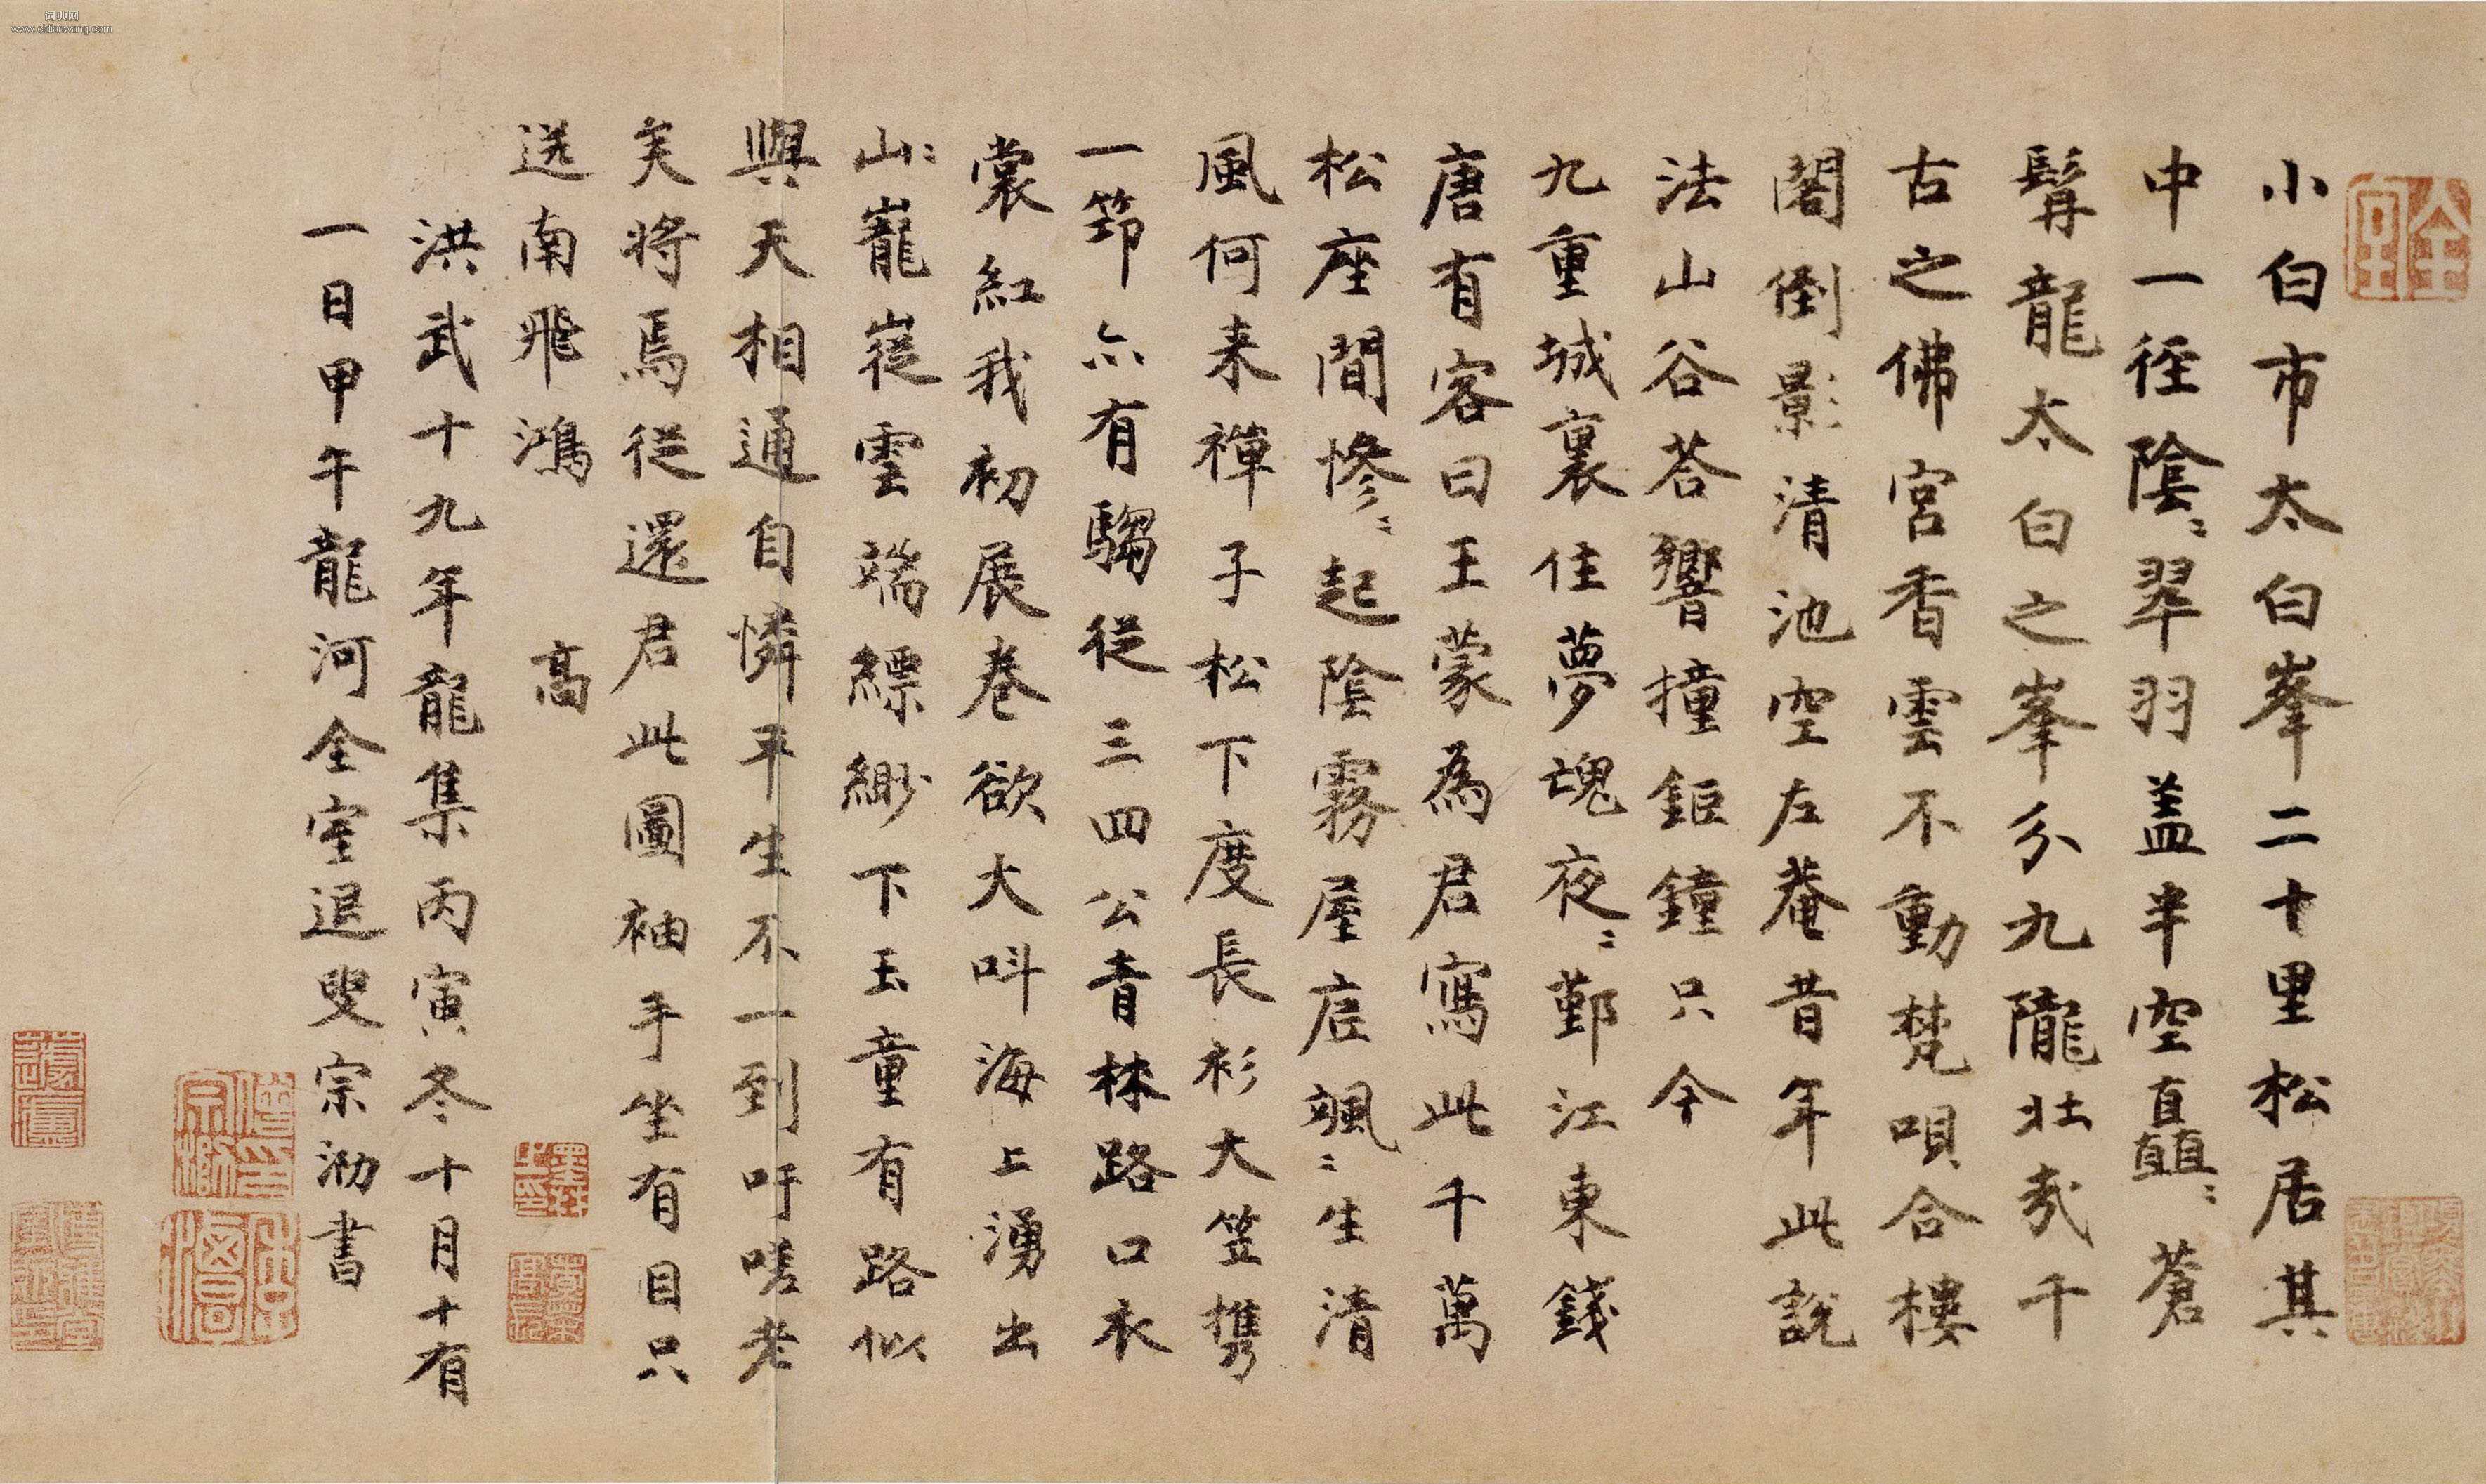 小白市太白峯二十里松居其
中一徑陰〻翠羽盖半空直矗〻蒼
髯龍太白之峯分九隴壯哉千
古之佛宮香雲不動梵唄合樓
閣倒影清池空左菴昔年此說
法山谷荅響撞鉅鐘只今
九重城裏住夢魂夜〻鄞江東錢
唐有客曰王蒙為君寫此千萬
松座間慘〻起陰霧屋底颯〻生清
風何来禪子松下度長衫大笠携
一笻亦有騶從三四公青林路口衣
裳紅我初展卷欲大呌海上湧出
山〻巃嵷雲端縹緲下玉童有路似
與天相通自憐平生不一到吁嗟老
矣將焉從還君此圖袖手坐有目只
送南飛鴻　高
洪武十九年龍集丙寅冬十月十有
一日甲午龍河全室退叟宗泐書
全室
词典网
www.cidianwang.com